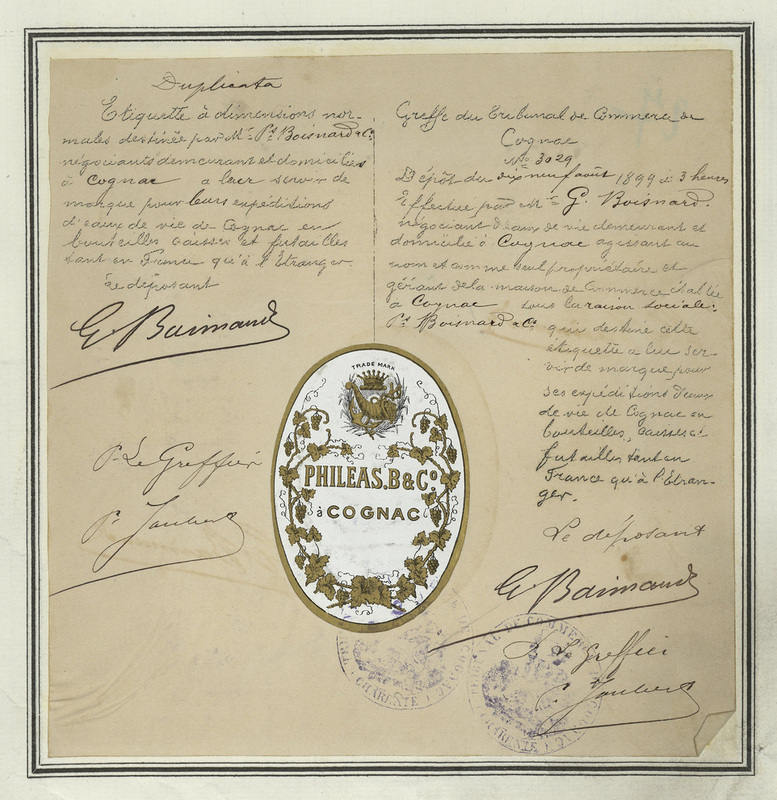 Duplicata
Etiquette à dimensions nor-
males destinée par Mrs Ps Boisnard & Co
négociants demeurant et domiciliés
à Cognac a leur servir de
marque pour leurs expéditions
d'eaux de vie de Cognac en
bouteilles caisses et futailles
tant en France qu'à l'Etranger
Le déposant
G. Boisnard
Pr Le Greffier
Pr Joubert
Greffe du Tribunal de Commerce de
Cognac
No 3029
Dépôt du dix neuf août 1899 à 3 heures
Effectué par Mr G. Boisnard.
négociant d'eaux de vie demeurant et
domicilié à Cognac agissant au
nom et comme seul propriétaire et
gérant de la maison de Commerce établie
à Cognac sous la raison sociale:
Ps Boisnard & Co qui destine cette
étiquette a lui ser-
vir de marque pour
ses expéditions d'eaux
de vie de Cognac en
bouteilles, caisses et
futailles tant en
France qu'à l'Etran-
ger.
Le déposant
G. Boisnard
P Le Greffier
P Joubert
TRADE MARK
PHILEAS.B & Co.
à COGNAC
CHARENTE COGNAC
TRIBUNAL DE COMMERCE COGNAC
CHARENTE